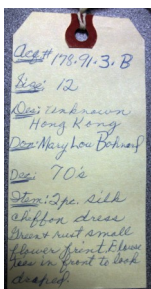 Acq# 178-91-3-B
Size: 12
Des: Unknown
Hong Kong
Don: Mary Lou
Dec: 70's
Item: 2pc. silk
chiffon dress
Green & rust small
flower print.
in front to look
draped.